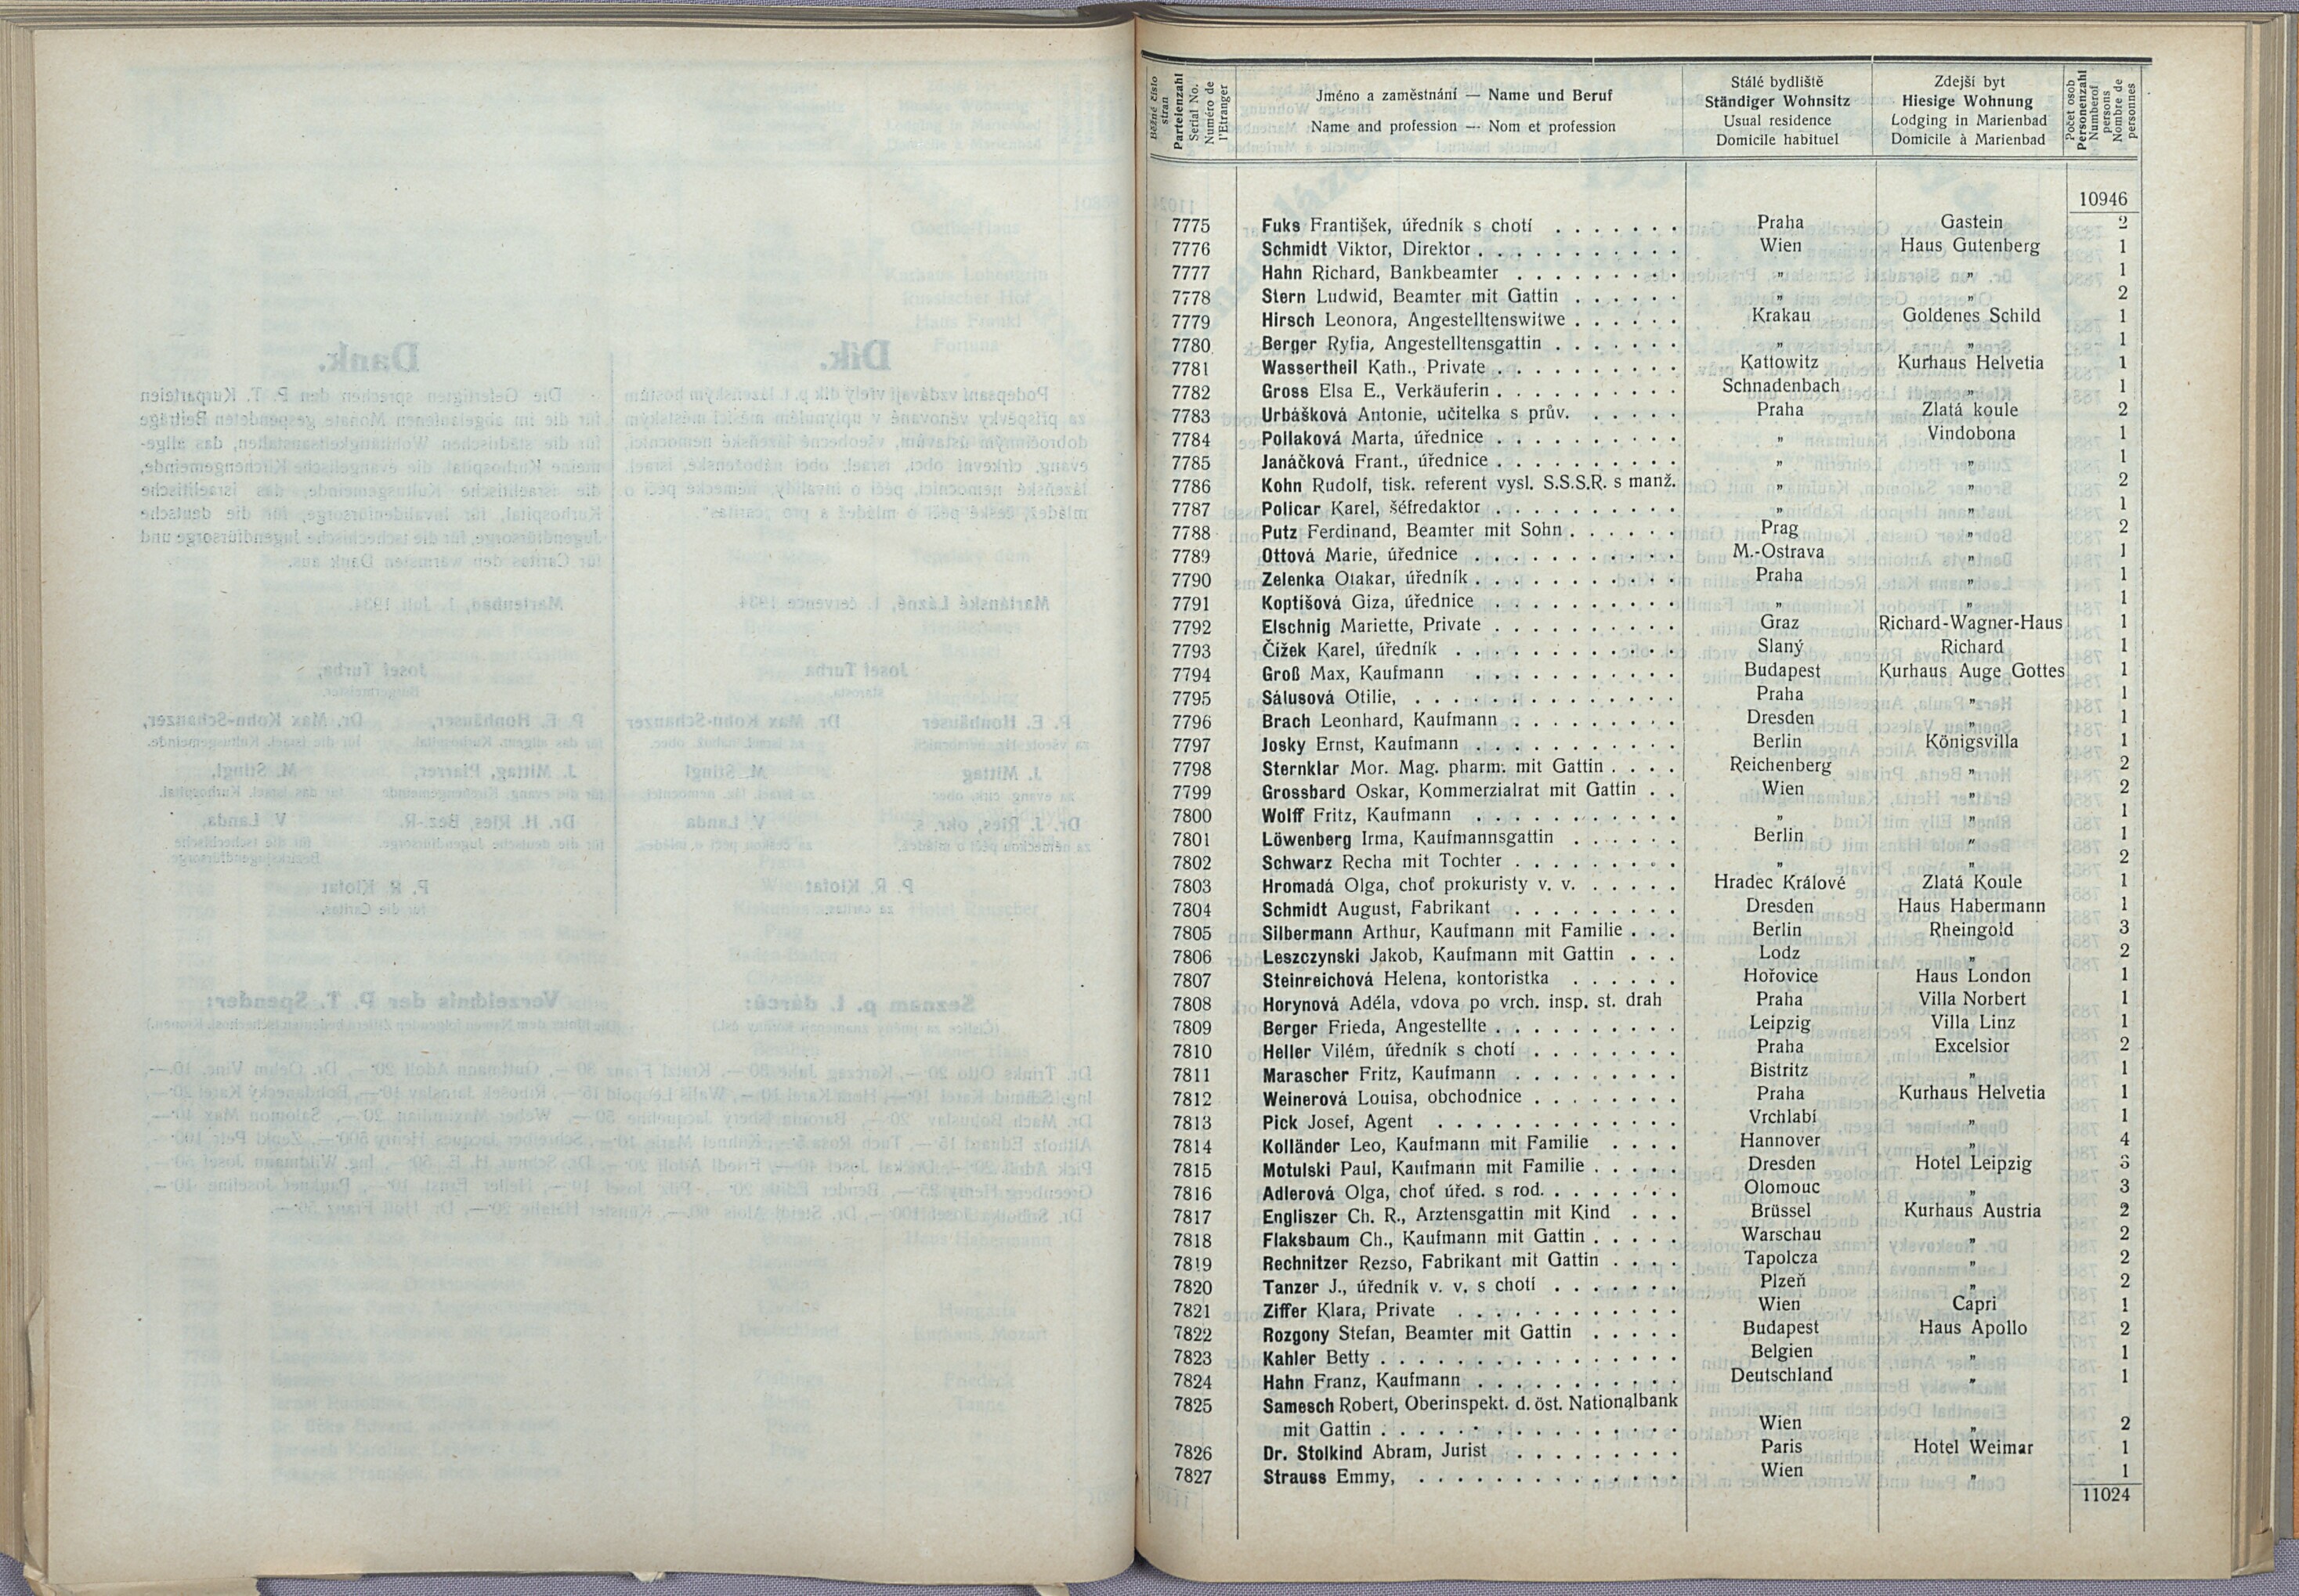 Běžné číslo stran
Parteienzahl
Serial No.
Numéro de l'Etranger
Jméno a zaměstnání — Name und Beruf
Name and profession — Nom et profession
Stálé bydliště
Ständiger Wohnsitz
Usual residence
Domicile habituel
Zdejší byt
Hiesige Wohnung
Lodging in Marienbad
Domicile à Marienbad
Počet osob
Personenzahl
Numberof persons
Nombre de personnes
10946
7775 Fuks František, úředník s chotí . . . . . . . Praha Gastein 2
7776 Schmidt Viktor, Direktor . . . . . . . . . . . Wien Haus Gutenberg 1
7777 Hahn Richard, Bankbeamter . . . . . . . . . „ „ 1
7778 Stern Ludwid, Beamter mit Gattin . . . . . . „ „ 2
7779 Hirsch Leonora, Angestelltenswitwe . . . . . . Krakau Goldenes Schild 1
7780 Berger Ryfia, Angestelltensgattin . . . . . . . „ „ 1
7781 Wassertheil Kath., Private . . . . . . . . . . Kattowitz Kurhaus Helvetia 1
7782 Gross Elsa E., Verkäuferin . . . . . . . . . . Schnadenbach „ 1
7783 Urbášková Antonie, učitelka s prův. . . . . . Praha Zlatá koule 2
7784 Pollaková Marta, úřednice . . . . . . . . . . „ Vindobona 1
7785 Janáčková Frant., úřednice . . . . . . . . . . „ „ 1
7786 Kohn Rudolf, tisk. referent vysl. S.S.S.R. s manž. „ „ 2
7787 Policar Karel, šéfredaktor . . . . . . . . . . „ „ 1
7788 Putz Ferdinand, Beamter mit Sohn . . . . . . Prag „ 2
7789 Ottová Marie, úřednice . . . . . . . . . . . M.-Ostrava „ 1
7790 Zelenka Otakar, úředník . . . . . . . . . . . Praha „ 1
7791 Koptišová Giza, úřednice . . . . . . . . . . „ „ 1
7792 Elschnig Mariette, Private . . . . . . . . . . Graz Richard-Wagner-Haus 1
7793 Čížek Karel, úředník . . . . . . . . . . . . Slaný Richard 1
7794 Groß Max, Kaufmann . . . . . . . . . . . Budapest Kurhaus Auge Gottes 1
7795 Sálusová Otilie, . . . . . . . . . . . . . . Praha „ 1
7796 Brach Leonhard, Kaufmann . . . . . . . . . Dresden „ 1
7797 Josky Ernst, Kaufmann . . . . . . . . . . . Berlin Königsvilla 1
7798 Sternklar Mor. Mag. pharm. mit Gattin . . . . Reichenberg „ 2
7799 Grossbard Oskar, Kommerzialrat mit Gattin . . Wien „ 2
7800 Wolff Fritz, Kaufmann . . . . . . . . . . . „ „ 1
7801 Löwenberg Irma, Kaufmannsgattin . . . . . . Berlin „ 1
7802 Schwarz Recha mit Tochter . . . . . . . . . „ „ 2
7803 Hromadá Olga, choť prokuristy v. v. . . . . . Hradec Králové Zlatá Koule 1
7804 Schmidt August, Fabrikant . . . . . . . . . Dresden Haus Habermann 1
7805 Silbermann Arthur, Kaufmann mit Familie . . . Berlin Rheingold 3
7806 Leszczynski Jakob, Kaufmann mit Gattin . . . Lodz „ 2
7807 Steinreichová Helena, kontoristka . . . . . . Hořovice Haus London 1
7808 Horynová Adéla, vdova po vrch. insp. st. drah Praha Villa Norbert 1
7809 Berger Frieda, Angestellte . . . . . . . . . . Leipzig Villa Linz 1
7810 Heller Vilém, úředník s chotí . . . . . . . . Praha Excelsior 2
7811 Marascher Fritz, Kaufmann . . . . . . . . . Bistritz „ 1
7812 Weinerová Louisa, obchodnice . . . . . . . . Praha Kurhaus Helvetia 1
7813 Pick Josef, Agent . . . . . . . . . . . . Vrchlabí „ 1
7814 Kolländer Leo, Kaufmann mit Familie . . . . Hannover „ 4
7815 Motulski Paul, Kaufmann mit Familie . . . . . Dresden Hotel Leipzig 3
7816 Adlerová Olga, choť úřed. s rod. . . . . . . . Olomouc „ 3
7817 Engliszer Ch. R., Arztensgattin mit Kind . . . Brüssel Kurhaus Austria 2
7818 Flaksbaum Ch., Kaufmann mit Gattin . . . . . Warschau „ 2
7819 Rechnitzer Rezso, Fabrikant mit Gattin . . . . Tapolcza „ 2
7820 Tanzer J., úředník v. v. s chotí . . . . . . . Plzeň „ 2
7821 Ziffer Klara, Private . . . . . . . . . . . . Wien Capri 1
7822 Rozgony Stefan, Beamter mit Gattin . . . . . Budapest Haus Apollo 2
7823 Kahler Betty . . . . . . . . . . . . . . . . Belgien „ 1
7824 Hahn Franz, Kaufmann . . . . . . . . . . . Deutschland „ 1
7825 Samesch Robert, Oberinspekt. d. öst. Nationalbank
mit Gattin . . . . . . . . . . . . . . . . Wien „ 2
7826 Dr. Stolkind Abram, Jurist . . . . . . . . . Paris Hotel Weimar 1
7827 Strauss Emmy, . . . . . . . . . . . . . . Wien „ 1
11024